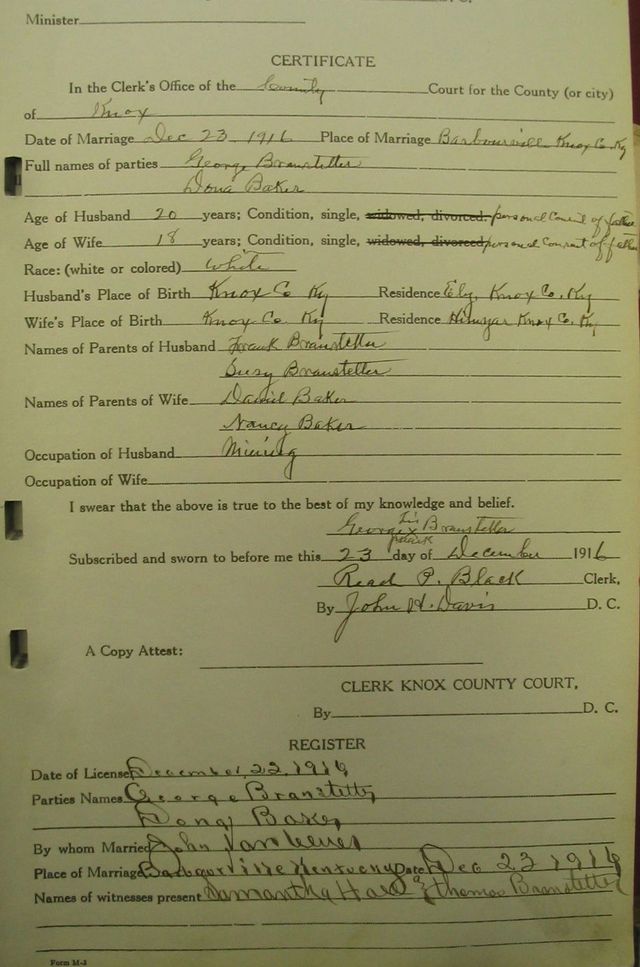 Minister
CERTIFICATE
In the Clerk's Office of the County Court for the County (or city)
of Knox
Date of Marriage Dec 23, 1916 Place of Marriage Barbourville Knox Co Ky
Full names of parties George Branstetter
Dona Baker
Age of Husband 20 years; Condition, single, widowed, divorced, personal consent of father
Age of Wife 18 years; Condition, single, widowed, divorced personal consent of father
Race: (white or colored) White
Husband's Place of Birth Knox Co Ky Residence Ely, Knox Co. Ky
Wife's Place of Birth Knox Co. Ky Residence Hinyar Knox Co. Ky
Names of Parents of Husband Frank Branstetter
Susy Branstetter
Names of Parents of Wife Daniel Baker
Nancy Baker
Occupation of Husband Mining
Occupation of Wife
I swear that the above is true to the best of my knowledge and belief.
George his x mark Branstetter
Subscribed and sworn to before me this 23 day of December 1916
Read P. Black Clerk,
By John H. Davis D. C.
A Copy Attest:
CLERK KNOX COUNTY COURT,
By D. C.
REGISTER
Date of License December, 22, 1916
Parties Names George Branstetter
Dona Baker
By whom Married John
Place of Marriage Kentucky Date Dec 23 1916
Names of witnesses present Samantha & Thomas Branstetter
Form M-3